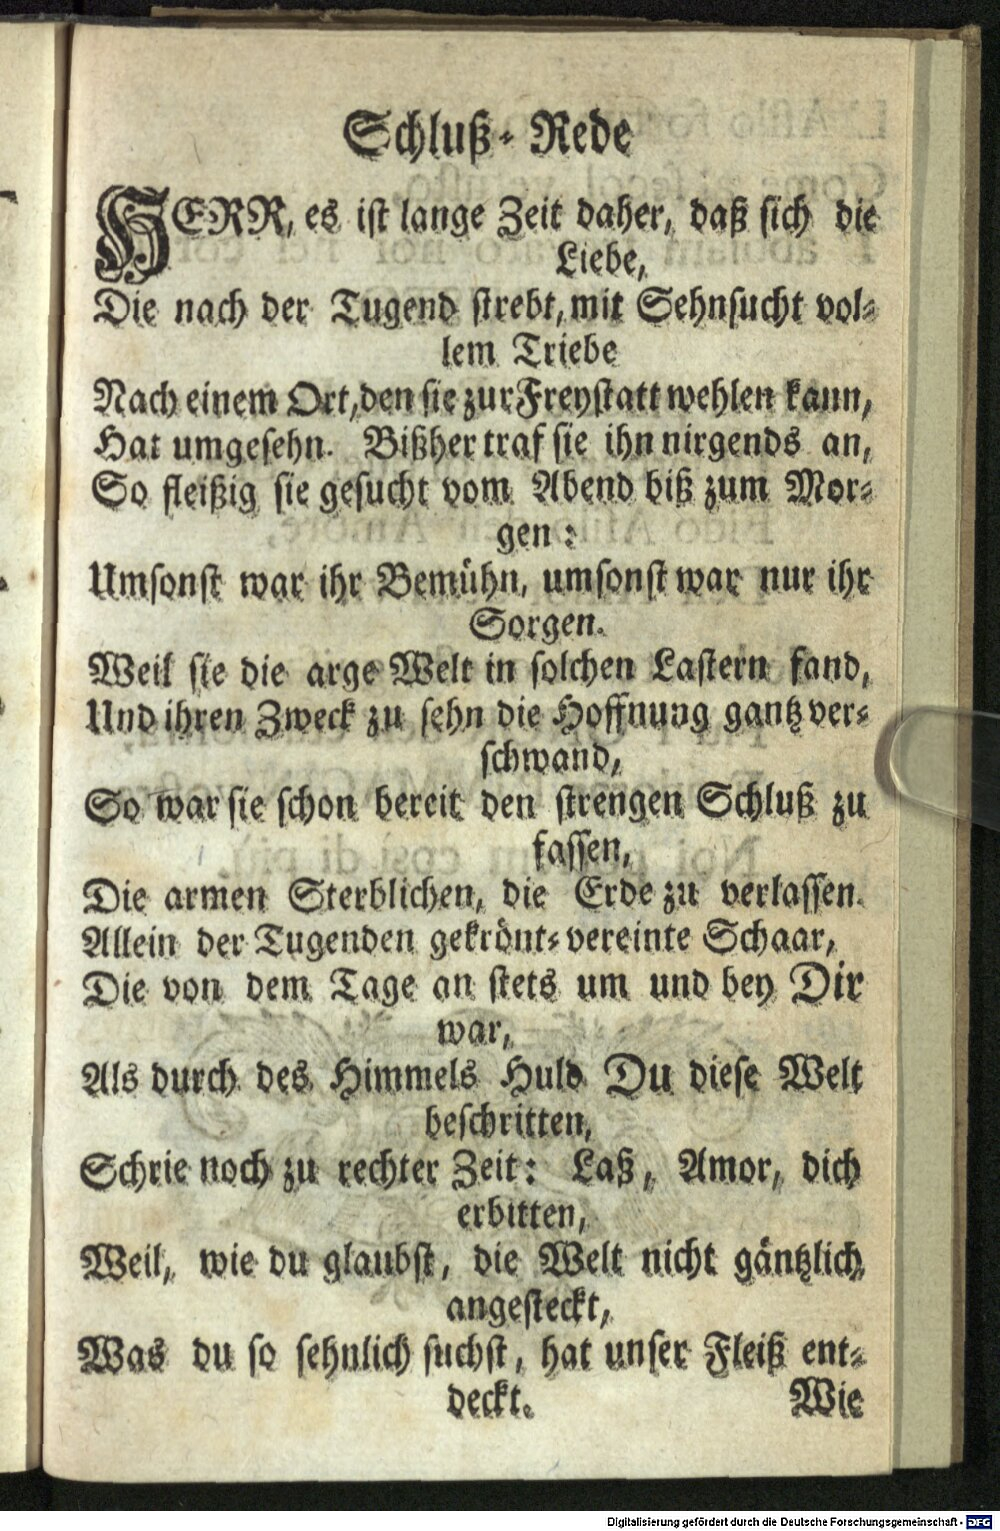 Schluß-Rede
HERR, es ist lange Zeit daher, daß sich die
Liebe,
Die nach der Tugend strebt, mit Sehnsucht vol-
lem Triebe
Nach einem Ort, den sie zur Freystatt wehlen kann,
Hat umgesehn. Bißher traf sie ihn nirgends an,
So fleißig sie gesucht vom Abend biß zum Mor-
gen:
Umsonst war ihr Bemühn, umsonst war nur ihr
Sorgen.
Weil sie die arge Welt in solchen Lastern fand,
Und ihren Zweck zu sehn die Hoffnung gantz ver-
schwand,
So war sie schon bereit den strengen Schluß zu
fassen,
Die armen Sterblichen, die Erde zu verlassen.
Allein der Tugenden gekrönt-vereinte Schaar,
Die von dem Tage an stets um und bey Dir
war,
Als durch des Himmels Huld Du diese Welt
beschritten,
Schrie noch zu rechter Zeit: Laß, Amor, dich
erbitten,
Weil, wie du glaubst, die Welt nicht gäntzlich
angesteckt,
Was du so sehnlich suchst, hat unser Fleiß ent-
deckt.
Wie
Digitalisierung gefördert durch die Deutsche Forschungsgemeinschaft - DFG